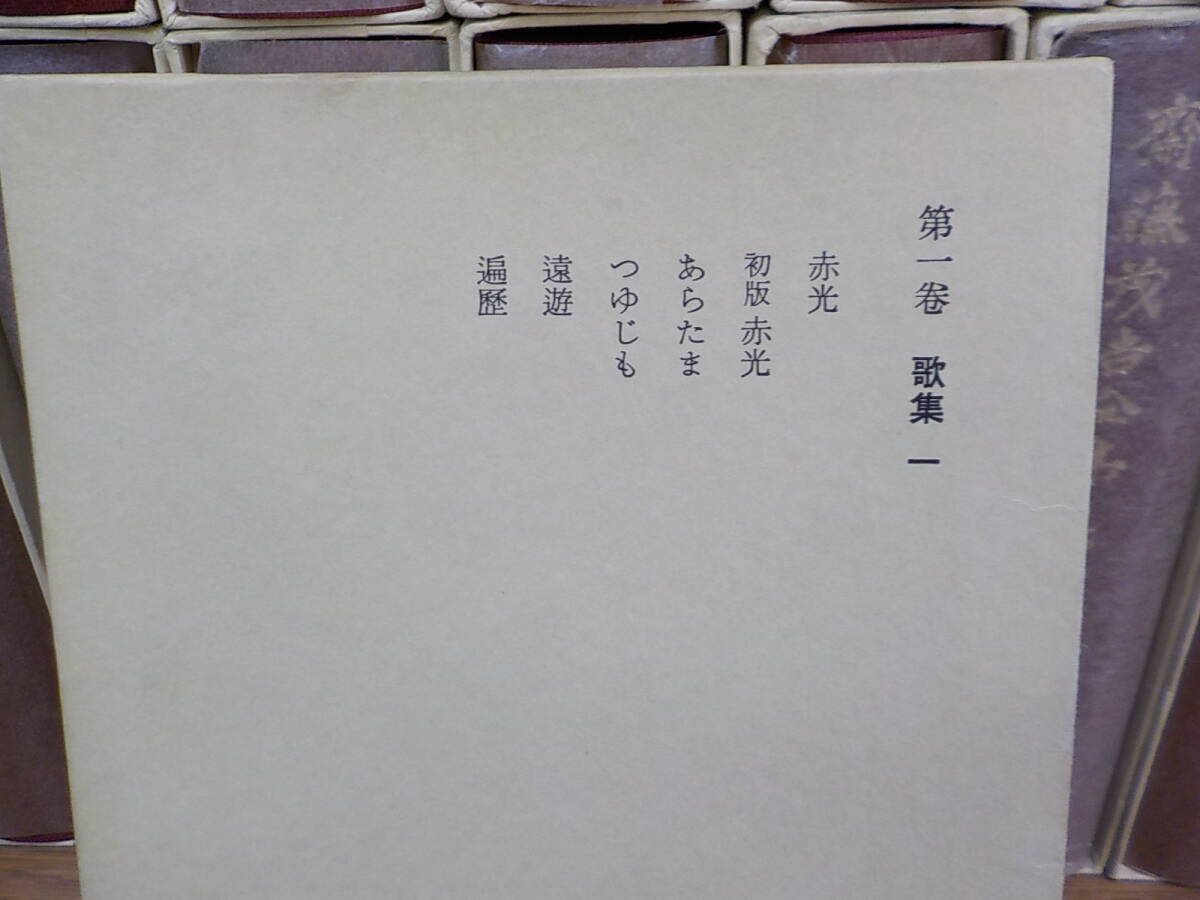 第一巻 歌集 一
赤光
初版 赤光
あらたま
つゆじも
遠遊
遍歷
齋藤茂吉全集